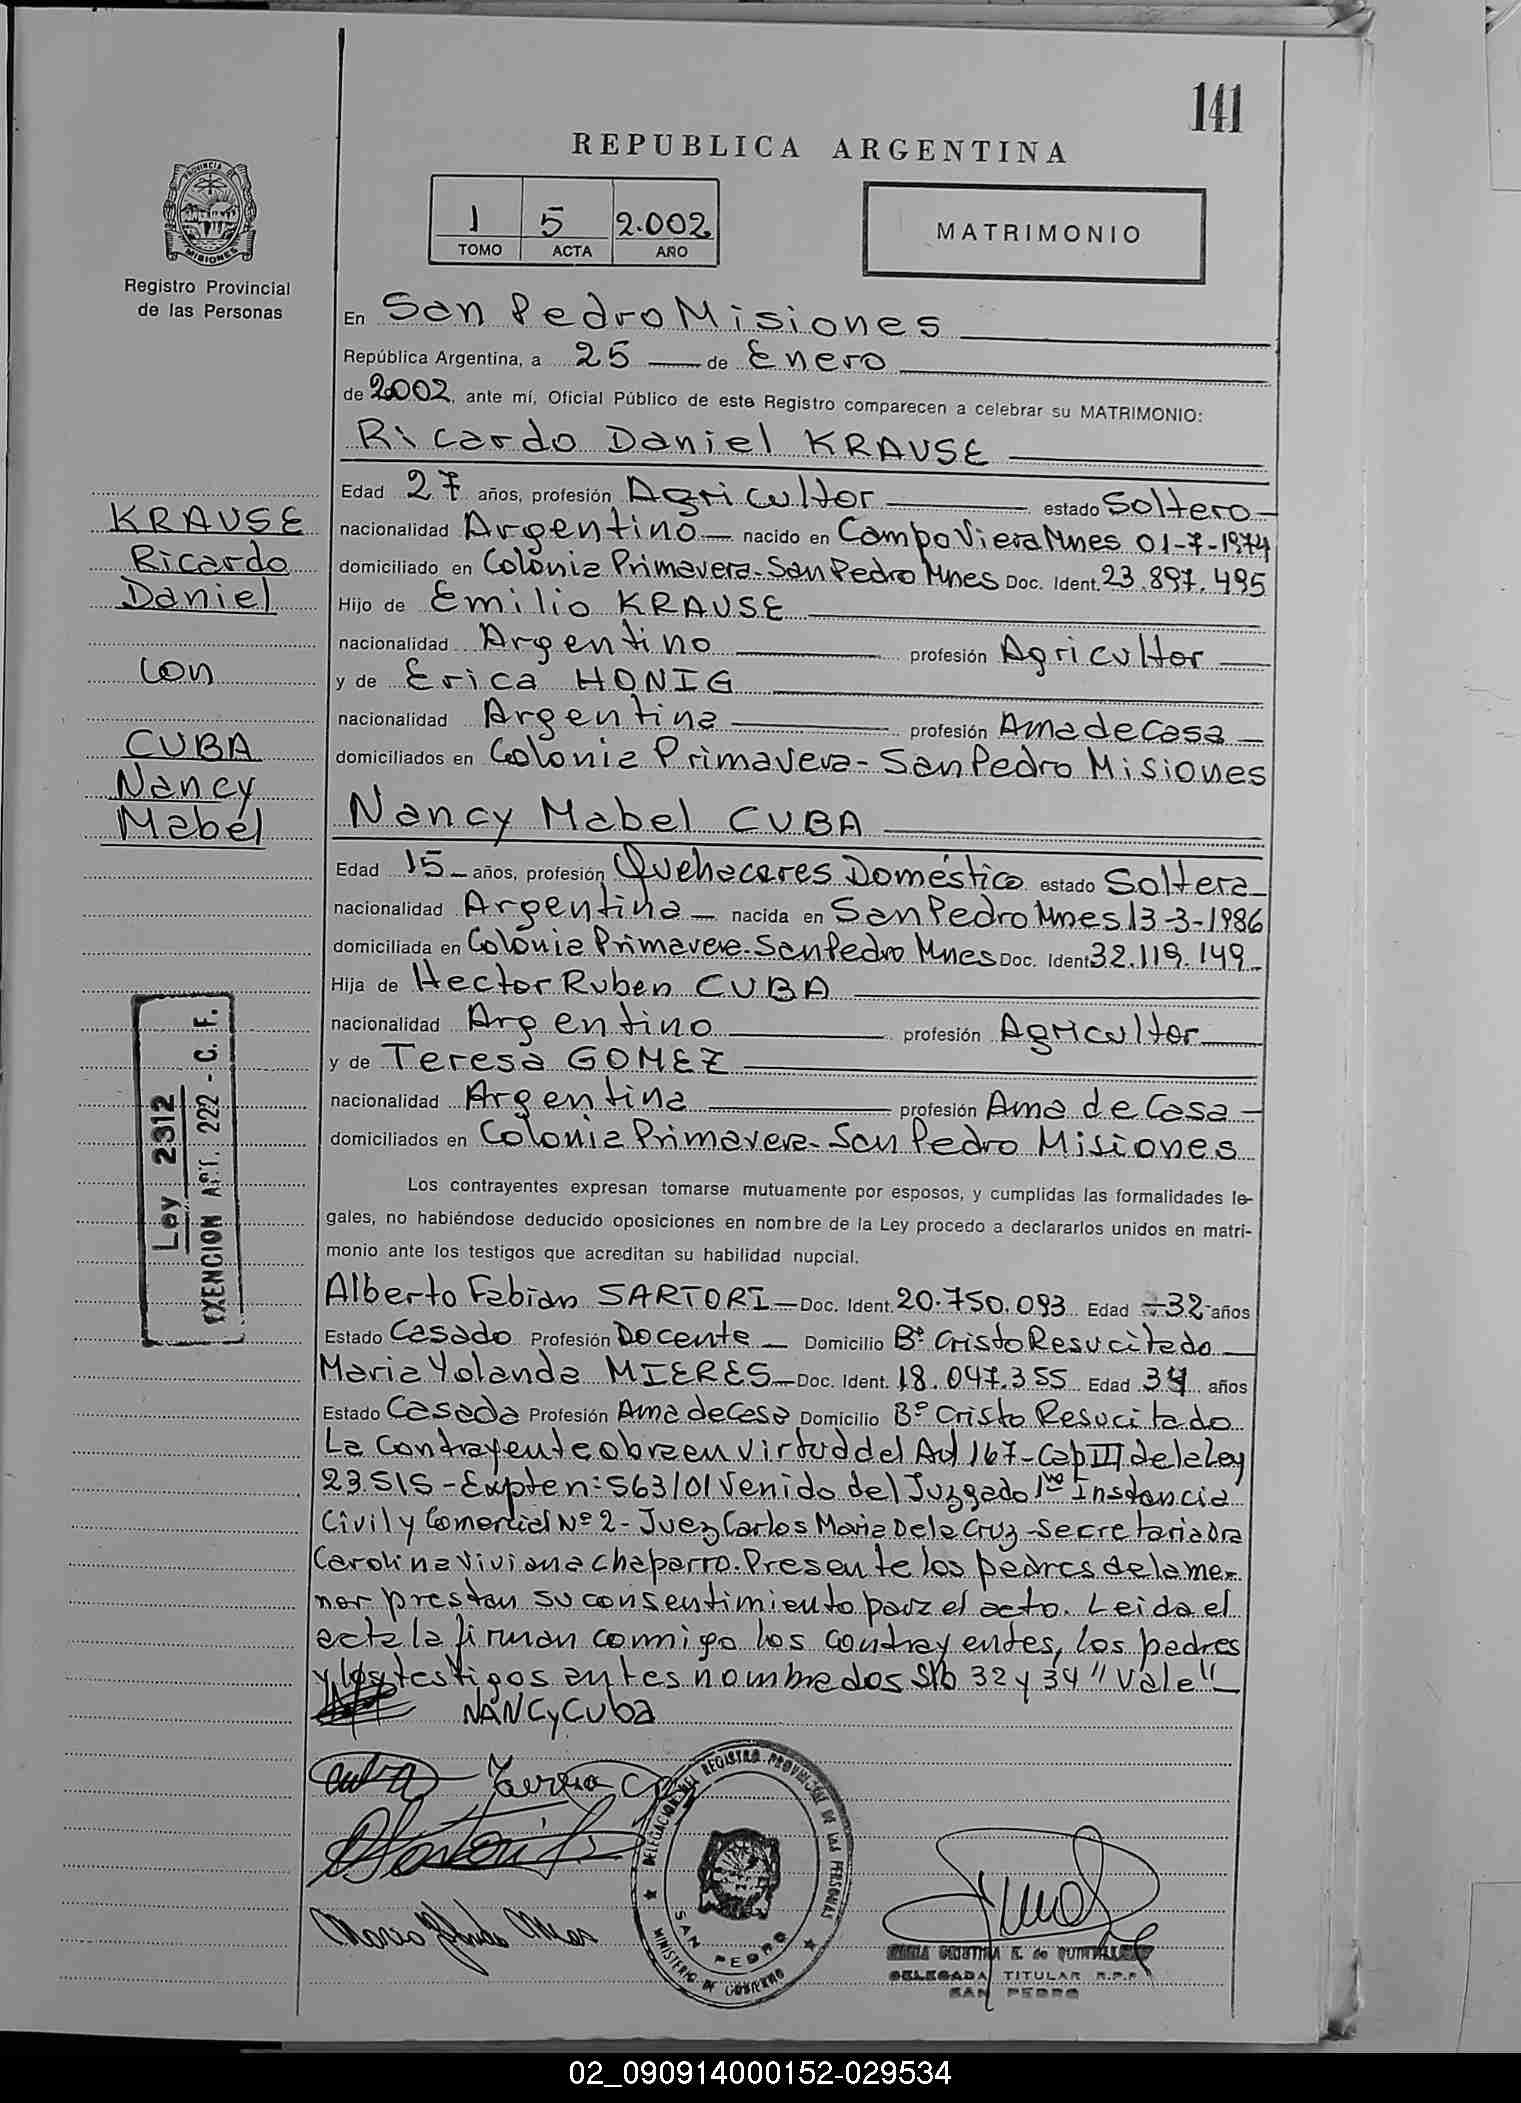 141
REPUBLICA ARGENTINA
1 5 2.002
TOMO ACTA AÑO
MATRIMONIO
PROVINCIA DE MISIONES
Registro Provincial
de las Personas
En San Pedro Misiones
República Argentina, a 25 de Enero
de 2002, ante mí, Oficial Público de este Registro comparecen a celebrar su MATRIMONIO:
Ricardo Daniel KRAUSE
Edad 27 años, profesión Agricultor estado Soltero
nacionalidad Argentino nacido en Campo Viera Mnes 01-7-1974
domiciliado en Colonia Primavera-San Pedro Mnes Doc. Ident. 23.897.495
Hijo de Emilio KRAUSE
nacionalidad Argentino profesión Agricultor
y de Erica HONIG
nacionalidad Argentina profesión Ama de Casa
domiciliados en Colonia Primavera-San Pedro Misiones
Nancy Mabel CUBA
Edad 15 años, profesión Quehaceres Doméstico estado Soltera
nacionalidad Argentina nacida en San Pedro Mnes 13-3-1986
domiciliada en Colonia Primavera-San Pedro Mnes Doc. Ident 32.119.149
Hija de Hector Ruben CUBA
nacionalidad Argentino profesión Agricultor
y de Teresa GOMEZ
nacionalidad Argentina profesión Ama de Casa
domiciliados en Colonia Primavera-San Pedro Misiones
Los contrayentes expresan tomarse mutuamente por esposos, y cumplidas las formalidades le-
gales, no habiéndose deducido oposiciones en nombre de la Ley procedo a declararlos unidos en matri-
monio ante los testigos que acreditan su habilidad nupcial.
Alberto Fabian SARTORI Doc. Ident. 20.750.093 Edad 32 años
Estado Casado Profesión Docente Domicilio Bº Cristo Resucitado
Maria Yolanda MIERES Doc. Ident. 18.047.355 Edad 34 años
Estado Casada Profesión Ama de Casa Domicilio Bº Cristo Resucitado
La Contrayente obra en virtud del Art 167-Cap III de la Ley
23.515-Expte n: 563/01 Venido del Juzgado 1ra Instancia
Civil y Comercial Nº 2-Juez Carlos Maria De la Cruz-Secretaria Dra
Carolina Viviana Chaparro. Presente los padres de la me-
nor prestan su consentimiento para el acto. Leida el
acta la firman conmigo los contrayentes, los padres
y los testigos antes nombrados S/b 32 y 34 "Vale"
NANCy Cuba
KRAUSE
Ricardo
Daniel
con
CUBA
Nancy
Mabel
Ley 2312
EXENCION ART. 222 - C. F.
DELEGACION DEL REGISTRO PROVINCIAL DE LAS PERSONAS
SAN PEDRO
MINISTERIO DE GOBIERNO
DELEGADA TITULAR R.P.P
SAN PEDRO
02_090914000152-029534